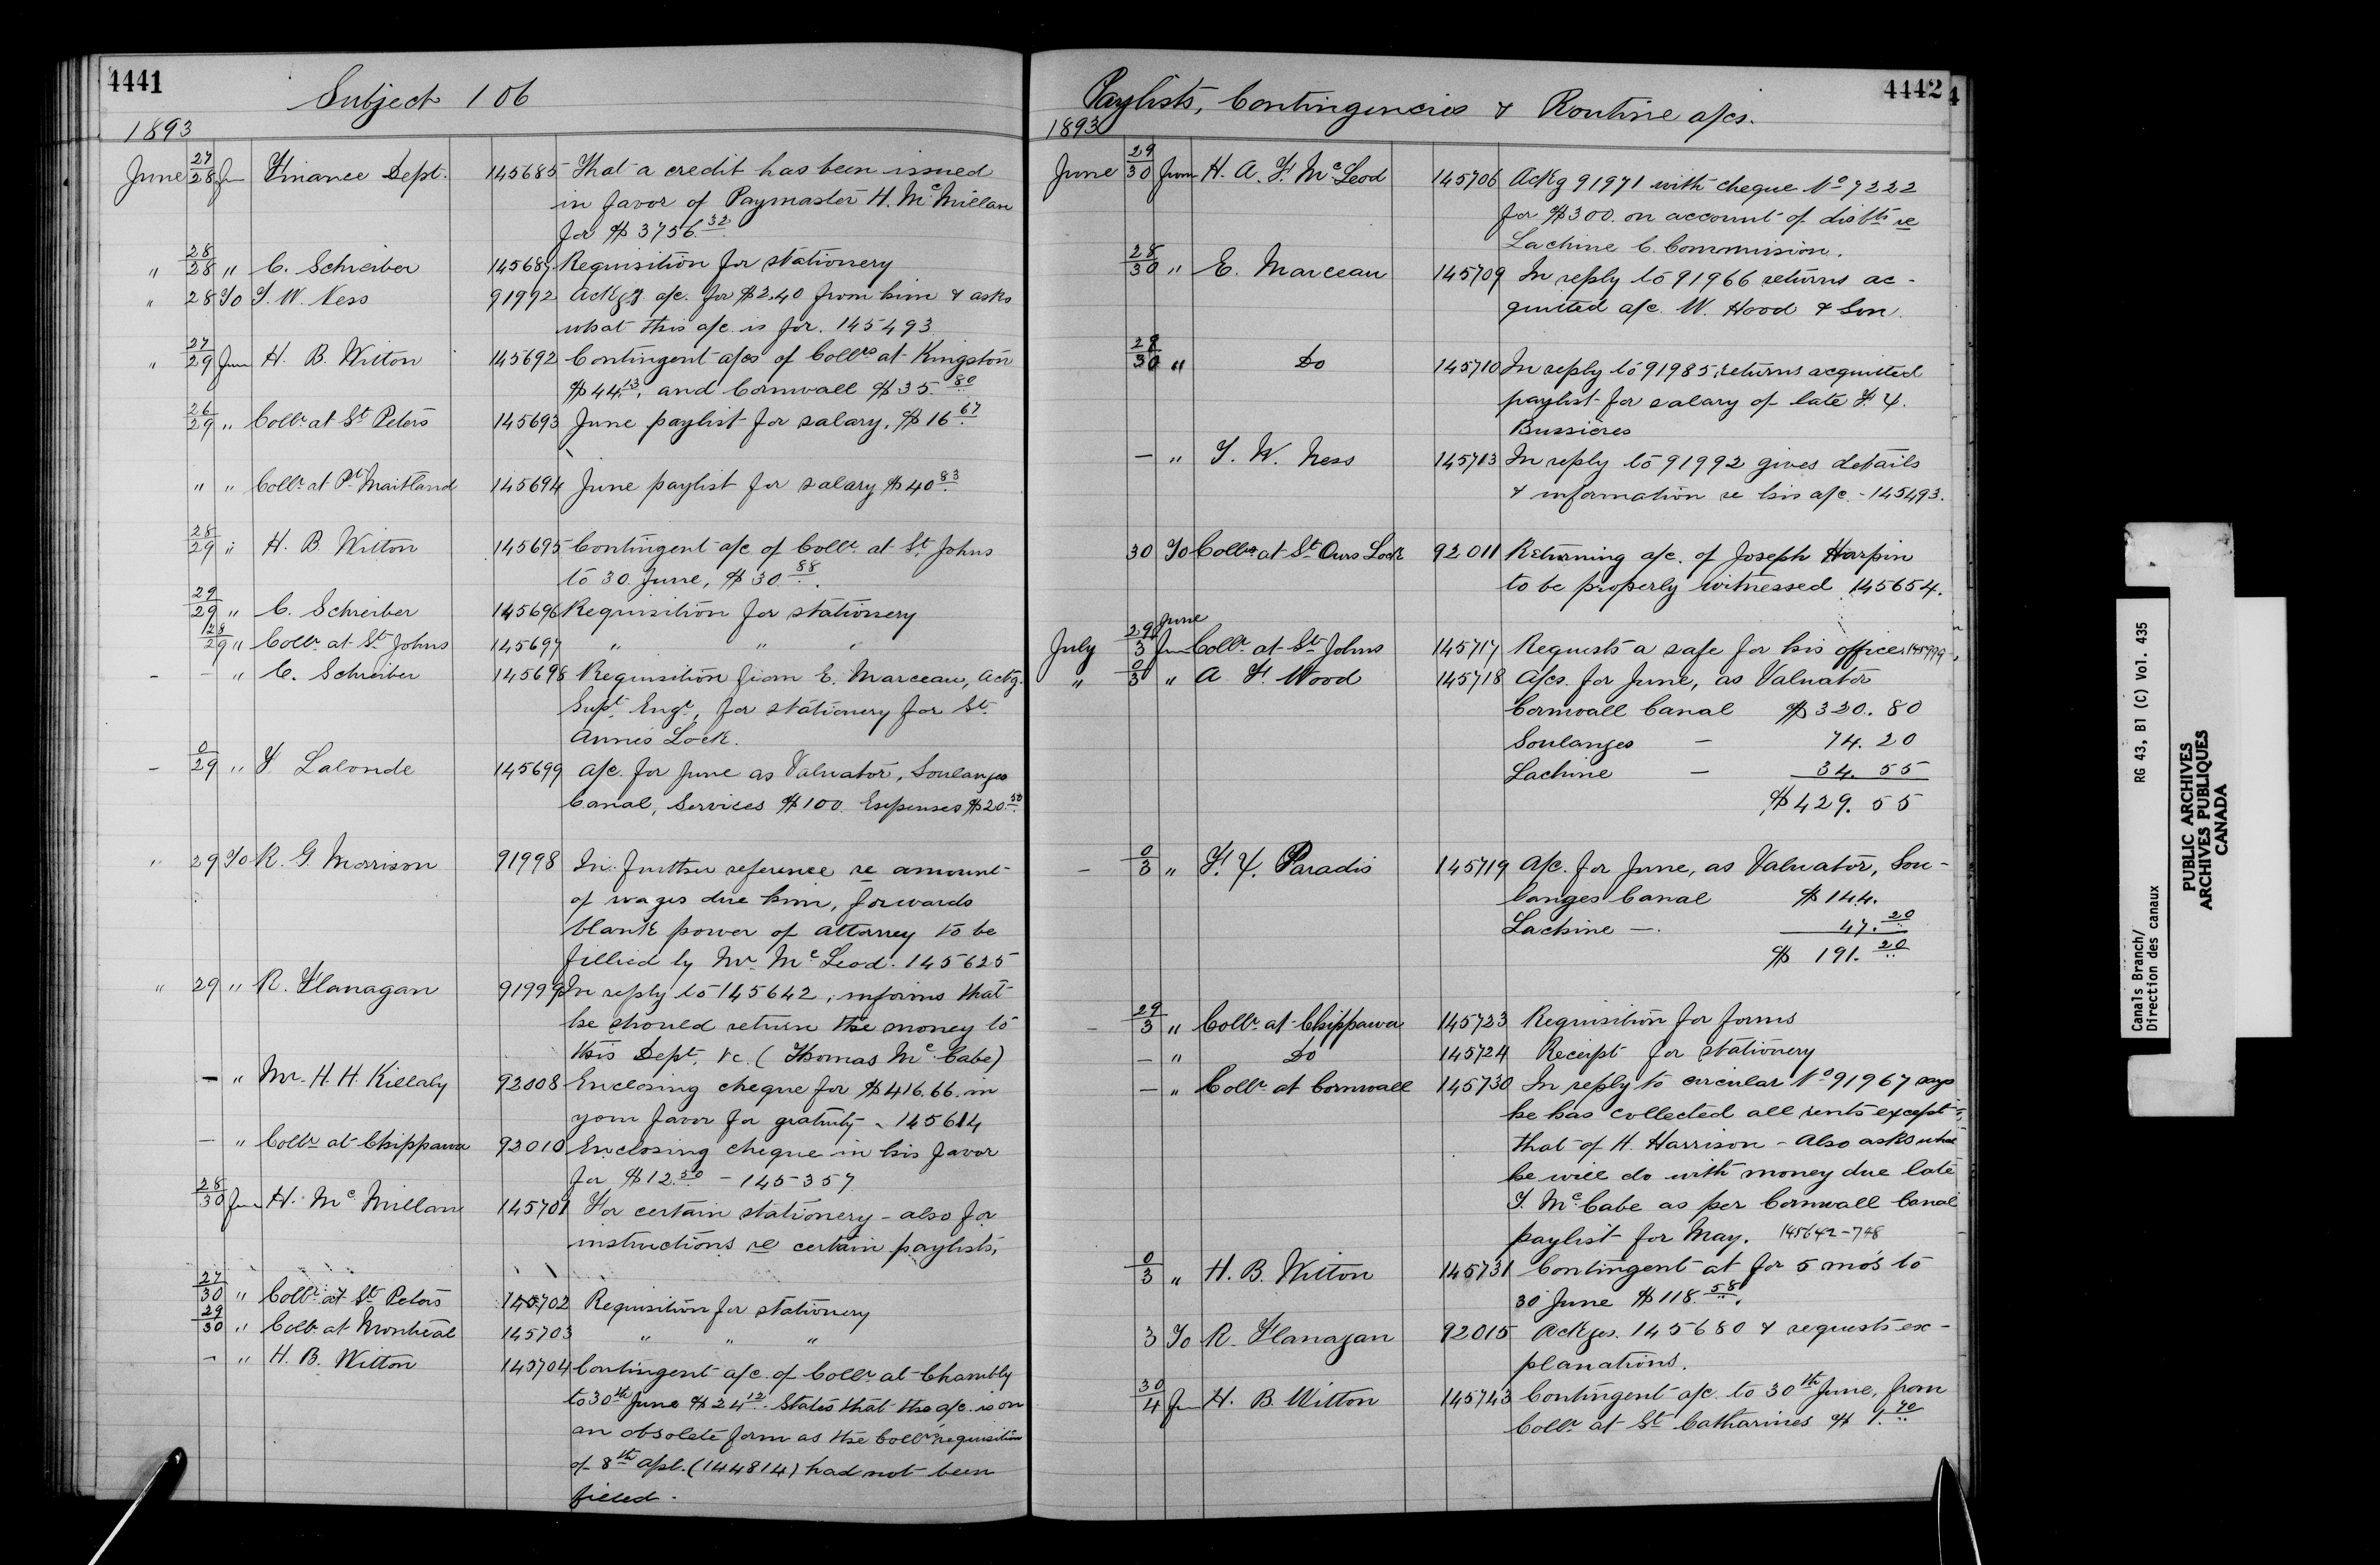 4441
Subject 106
1893
June 27/28 fm Finance Dept. 145685 That a credit has been issued
in favor of Paymaster H. McMillan
for $3756.32
" 28/28 " C. Schreiber 145687 Requisition for stationery
" 28 To T. W. Ness 91992 Ackgg a/c. for $2.40 from him & asks
what this a/c is for. 145493
" 27/29 from H. B. Witton 145692 Contingent a/cs of Collrs at Kingston
$44.13, and Cornwall $35.80
26/29 " Collr at St Peters 145693 June paylist for salary, $16.67
" " Collr at Pt Maitland 145694 June paylist for salary $40.83
28/29 " H. B. Witton 145695 Contingent a/c of Collr at St Johns
to 30 June, $30.88.
29/29 " C. Schreiber 145696 Requisition for stationery
28/29 " Collr at St Johns 145697 " " "
- - " C. Schreiber 145698 Requisition from E. Marceau, Actg.
Supt. Engr, for stationery for St.
Annes Lock.
- 0/29 " F. Lalonde 145699 a/c. for June as Valuator, Soulanges
Canal, Services $100. Expenses $20.50
" 29 To R. G. Morrison 91998 In further reference re amount
of wages due him, forwards
blank power of attorney to be
filled by Mr McLeod. 145625
" 29 " R. Flanagan 91999 In reply to 145642, informs that
he should return the money to
this Dept. &c. (Thomas McCabe)
- " Mr. H. H. Killaly 92008 Enclosing cheque for $416.66 in
your favor for gratuity - 145614
- " Collr at Chippawa 92010 Enclosing cheque in his favor
for $12.50 - 145357
28/30 from H. McMillan 145701 For certain stationery - also for
instructions re certain paylists,
27/30 " Collr at St Peters 145702 Requisition for stationery
29/30 " Collr at Montreal 145703 " " "
- " H. B. Witton 145704 Contingent a/c. of Collr at Chambly
to 30th June $24.12. States that the a/c. is on
an obsolete form as the Collr's requisition
of 8th Apl. (144814) had not been
filled.
4442
4
Paylists, Contingencies & Routine a/cs.
1893
June 29/30 from H. A. F. McLeod 145706 Ackg 91971 with cheque No 7222
for $300. on account of disbts re
Lachine C. Commission.
28/30 " E. Marceau 145709 In reply to 91966 returns ac-
quitted a/c. W. Hood & Son.
29/30 " Do 145710 In reply to 91985, returns acquitted
paylist for salary of late F. X.
Bussières
- " T. W. Ness 145713 In reply to 91992 gives details
& information re his a/c - 145493.
30 To Collr at St Ours Lock 92011 Returning a/c. of Joseph Harpin
to be properly witnessed 145654.
June
July 29/3 fm Collr at St Johns 145717 Requests a safe for his office.
" 0/3 " A. F. Wood 145718 A/cs. for June, as Valuator
Cornwall Canal $320.80
Soulanges - 74.20
Lachine - 34.55
$429.55
- 0/3 " F. X. Paradis 145719 A/c. for June, as Valuator, Sou-
langes Canal $144.
Lachine -. 47.20
$191.20
- 29/3 " Collr at Chippawa 145723 Requisition for forms
- " Do 145724 Receipt for stationery
- " Collr at Cornwall 145730 In reply to circular No 91967 says
he has collected all rents except
that of H. Harrison - Also asks what
he will do with money due late
T. McCabe as per Cornwall Canal
paylist for May. 145642-748
0/3 " H. B. Witton 145731 Contingent at for 5 mo's to
30 June $118.58.
3 To R. Flanagan 92015 Ackges. 145680 & requests ex-
planations.
30/4 fm H. B. Witton 145743 Contingent a/c. to 30th June, from
Collr at St Catharines $1.70
Canals Branch/
Direction des canaux
RG 43, B1 (C) Vol. 435
PUBLIC ARCHIVES
ARCHIVES PUBLIQUES
CANADA